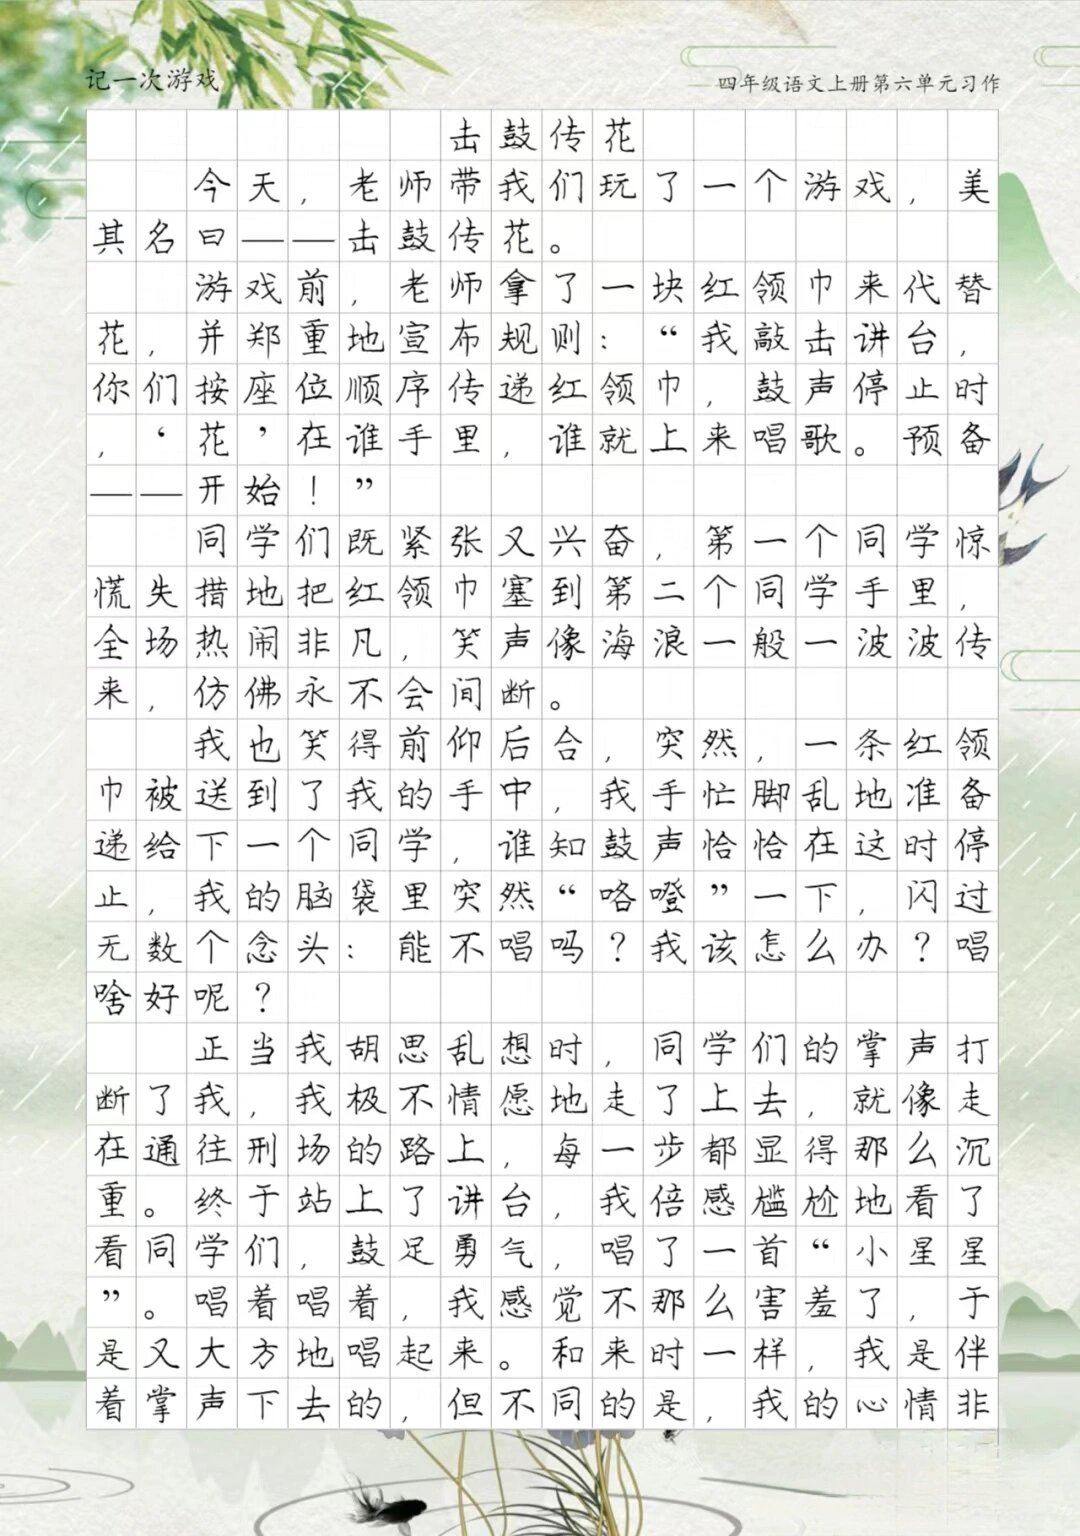 记一次游戏
四年级语文上册第六单元习作
击鼓传花
今天，老师带我们玩了一个游戏，美
其名曰——击鼓传花。
游戏前，老师拿了一块红领巾来代替
花，并郑重地宣布规则：“我敲击讲台，
你们按座位顺序传递红领巾，鼓声停止时
，‘花’在谁手里，谁就上来唱歌。预备
——开始！”
同学们既紧张又兴奋，第一个同学惊
慌失措地把红领巾塞到第二个同学手里，
全场热闹非凡，笑声像海浪一般一波波传
来，仿佛永不会间断。
我也笑得前仰后合，突然，一条红领
巾被送到了我的手中，我手忙脚乱地准备
递给下一个同学，谁知鼓声恰恰在这时停
止，我的脑袋里突然“咯噔”一下，闪过
无数个念头：能不唱吗？我该怎么办？唱
啥好呢？
正当我胡思乱想时，同学们的掌声打
断了我，我极不情愿地走了上去，就像走
在通往刑场的路上，每一步都显得那么沉
重。终于站上了讲台，我倍感尴尬地看了
看同学们，鼓足勇气，唱了一首“小星星
”。唱着唱着，我感觉不那么害羞了，于
是又大方地唱起来。和来时一样，我是伴
着掌声下去的，但不同的是，我的心情非